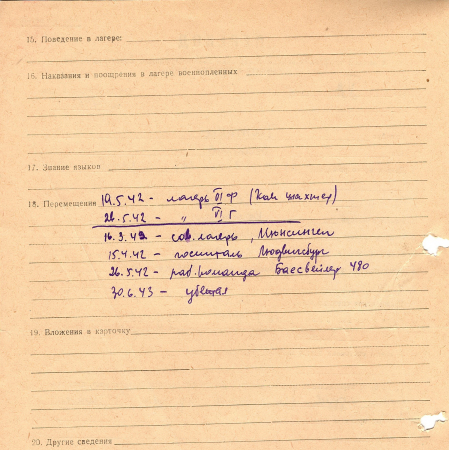 15. Поведение в лагере:
16. Наказания и поощрения в лагере военнопленных
17. Знание языков
18. Перемещения 19.5.42 - лагерь VI Ф (Как шахтер)
28.5.42 - " VI Г
16.3.42 - сов. лагерь, Мюнсинген
15.4.42 - госпиталь Людвигсбург
26.5.42 - раб. команда Баесвейлер 480
30.6.43 - убежал
19. Вложения в карточку
20. Другие сведения